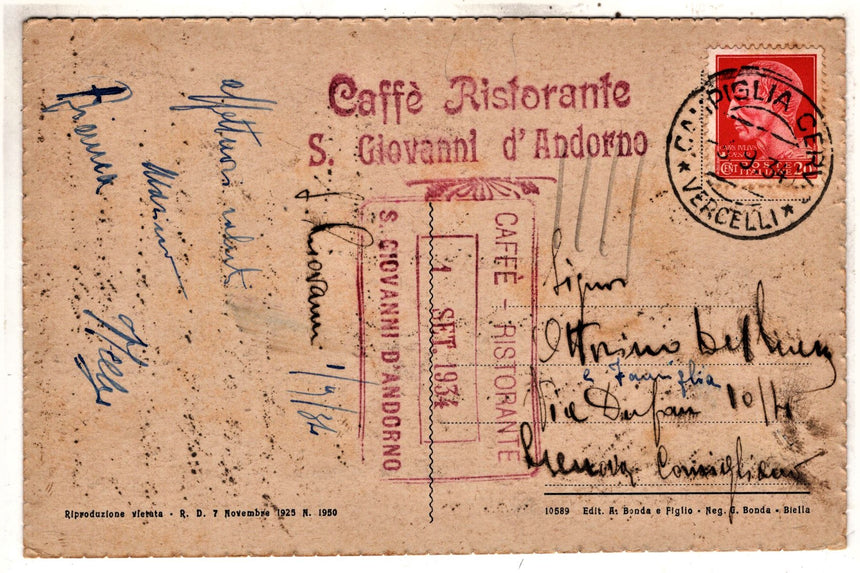 Caffè Ristorante
S. Giovanni d'Andorno
CAMPIGLIA CERV
9.34
★ VERCELLI ★
CAFFÈ - RISTORANTE
1 SET. 1934
S. GIOVANNI D'ANDORNO
S. Giovanni 1/9/34
affettuosi saluti
Marino
Signor
Ottorino
e Famiglia
Via 10/4
Genova Cornigliano
Riproduzione vietata - R. D. 7 Novembre 1925 N. 1950
10589 Edit. A. Bonda e Figlio - Neg. G. Bonda - Biella